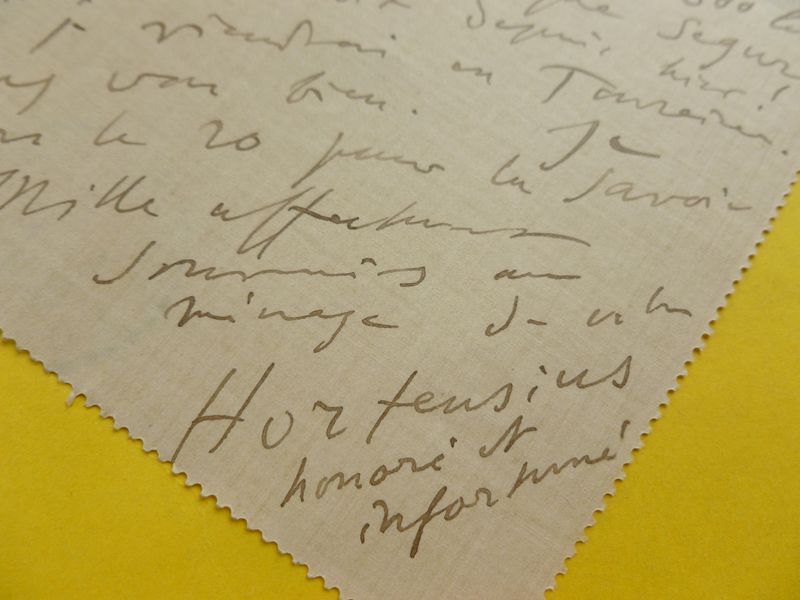 300
Ségur
j' viendrai depuis hier!
en Touraine.
van bien. Je
le 20 pour la Savoie
Mille affectueux
souvenirs au
ménage de votre
Hortensius
honoré et
infortuné